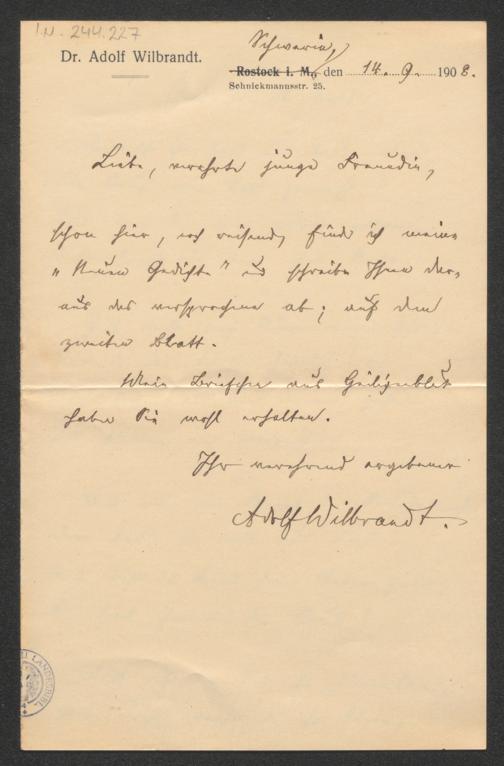 I.N. 244.227
Dr. Adolf Wilbrandt.
Schwerin,
Rostock i. M., den 14. 9. 1908.
Schnickmannsstr. 25.
Liebe, verehrte junge Freundin,
schon hier, noch reisend, finde ich meine
„Neuen Gedichte" und schreibe Ihnen dar-
aus das versprochene ab; auf dem
zweiten Blatt.
Mein Briefchen aus Heiligenblut
haben Sie wohl erhalten.
Ihr verehrend ergebener
Adolf Wilbrandt.